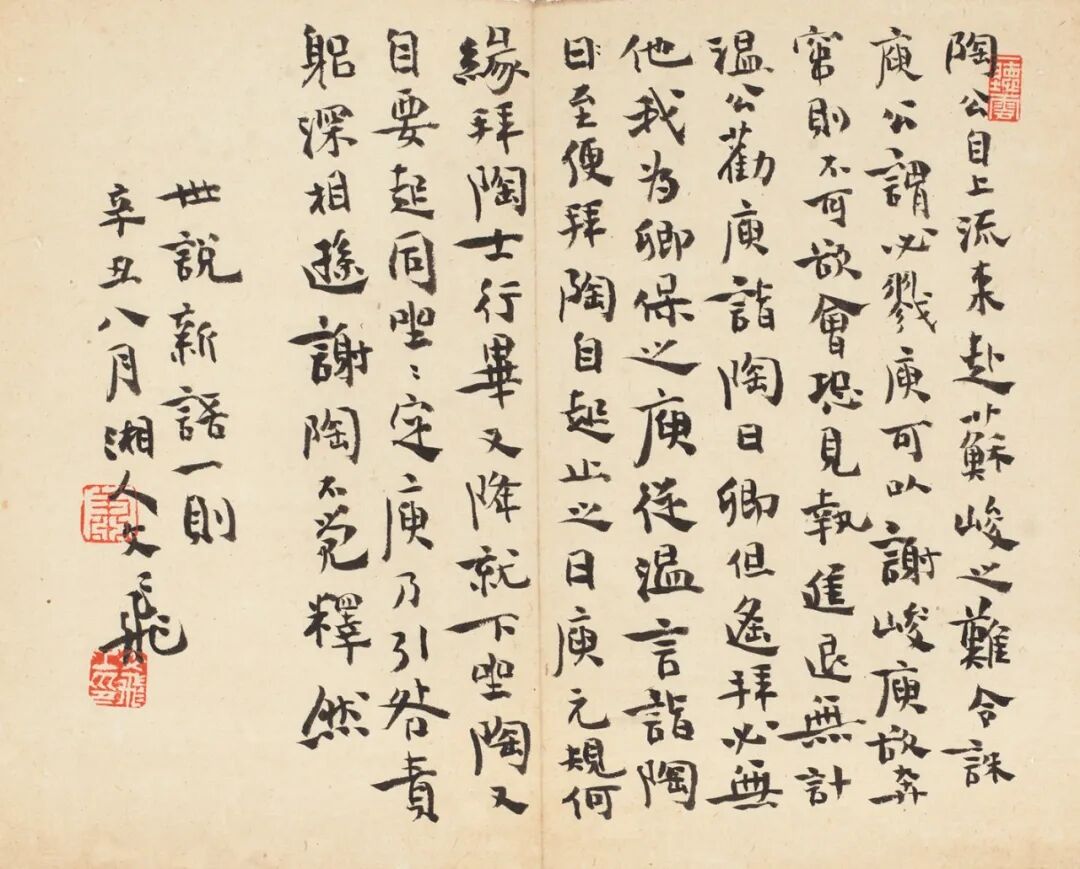 陶公自上流来赴蘇峻之難令誅
庾公謂必戮庾可以謝峻庾欲奔
竄則不可欲會恐見執進退無計
温公勸庾詣陶曰卿但遙拜必無
他我為卿保之庾從温言詣陶
至便拜陶自起止之曰庾元規何
緣拜陶士行畢又降就下坐陶又
自要起同坐〻定庾乃引咎責
躬深相遜謝陶不覺釋然
世說新語一則
辛丑八月湘人文飛